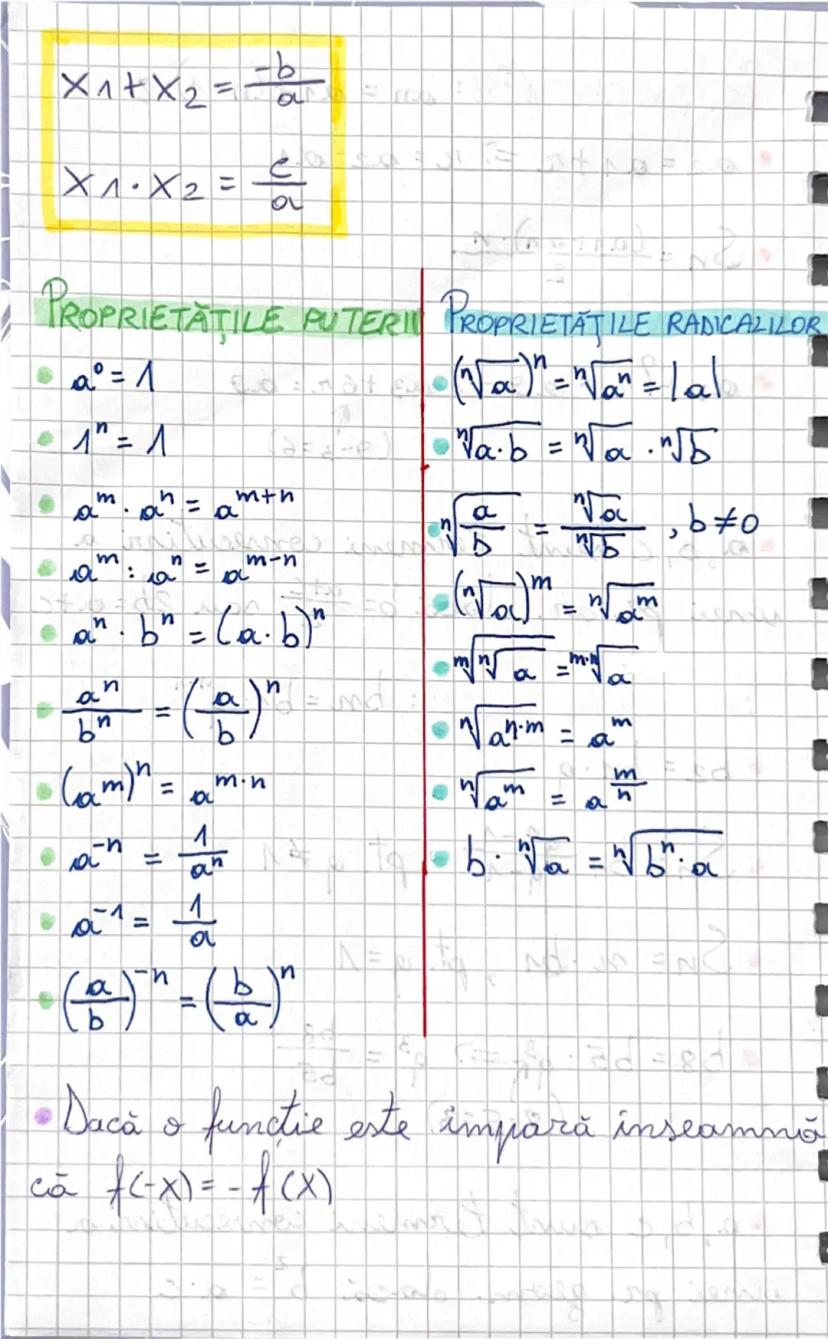 x1+x2 = -b/a
x1·x2 = c/a
PROPRIETĂȚILE PUTERII
• a⁰ = 1
• 1ⁿ = 1
• aᵐ · aⁿ = aᵐ⁺ⁿ
• aᵐ : aⁿ = aᵐ⁻ⁿ
• aⁿ · bⁿ = (a · b)ⁿ
• aⁿ/bⁿ = (a/b)ⁿ
• (aᵐ)ⁿ = aᵐ·ⁿ
• a⁻ⁿ = 1/aⁿ
• a⁻¹ = 1/a
• (a/b)⁻ⁿ = (b/a)ⁿ
PROPRIETĂȚILE RADICALILOR
• (ⁿ√a)ⁿ = ⁿ√(aⁿ) = |a|
• ⁿ√(a·b) = ⁿ√a · ⁿ√b
• ⁿ√(a/b) = ⁿ√a/ⁿ√b , b≠0
• (ⁿ√a)ᵐ = ⁿ√(aᵐ)
• ᵐ√(ⁿ√a) = ᵐ·ⁿ√a
• ⁿ√(aⁿ·ᵐ) = aᵐ
• ⁿ√(aᵐ) = a^(m/n)
• b · ⁿ√a = ⁿ√(bⁿ · a)
• Dacă o funcție este impară înseamnă
că f(-x) = -f(x)